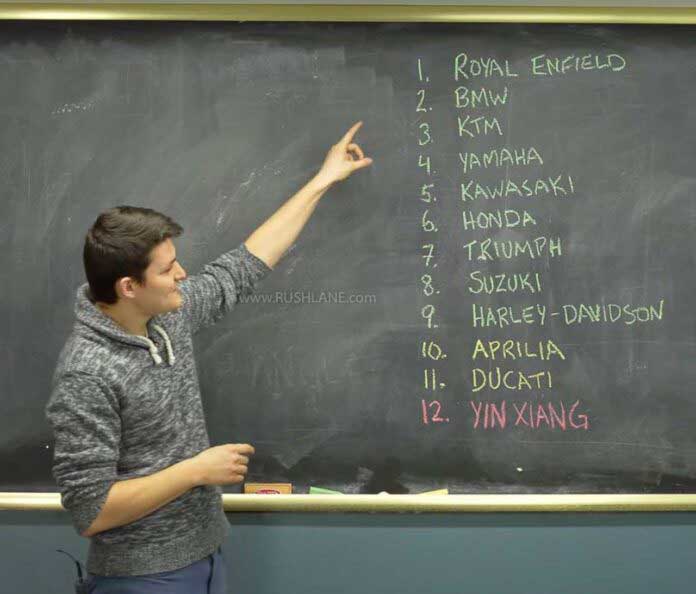 1. ROYAL ENFIELD
2. BMW
3. KTM
4. YAMAHA
5. KAWASAKI
6. HONDA
7. TRIUMPH
8. SUZUKI
9. HARLEY-DAVIDSON
10. APRILIA
11. DUCATI
12. YIN XIANG
www.RUSHLANE.com